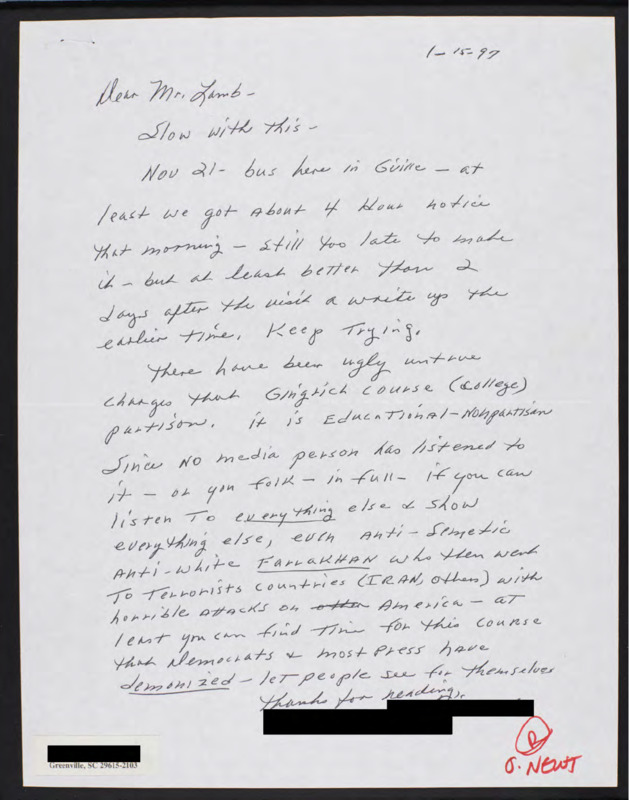 1-15-97
Dear Mr. Lamb-
Slow with this-
Nov 21- bus here in G'ville - at
least we got about 4 hour notice
that morning - still too late to make
it - but at least better than 2
days after the visit a write up the
earlier time. Keep Trying.
There have been ugly untrue
charges that Gingrich course (College)
partison. it is Educational-Nonpartisan
Since NO media person has listened to
it - or you folk - in full - if you can
listen To everything else & show
everything else, even Anti-Semetic
Anti-white FARRAKHAN who then went
To Terrorists countries (IRAN, others) with
horrible attacks on America - at
least you can find Time for this course
that Democrats & most press have
demonized - let people see for themselves
Thanks for reading,
Greenville, SC 29615-2103
R
O. NEWT